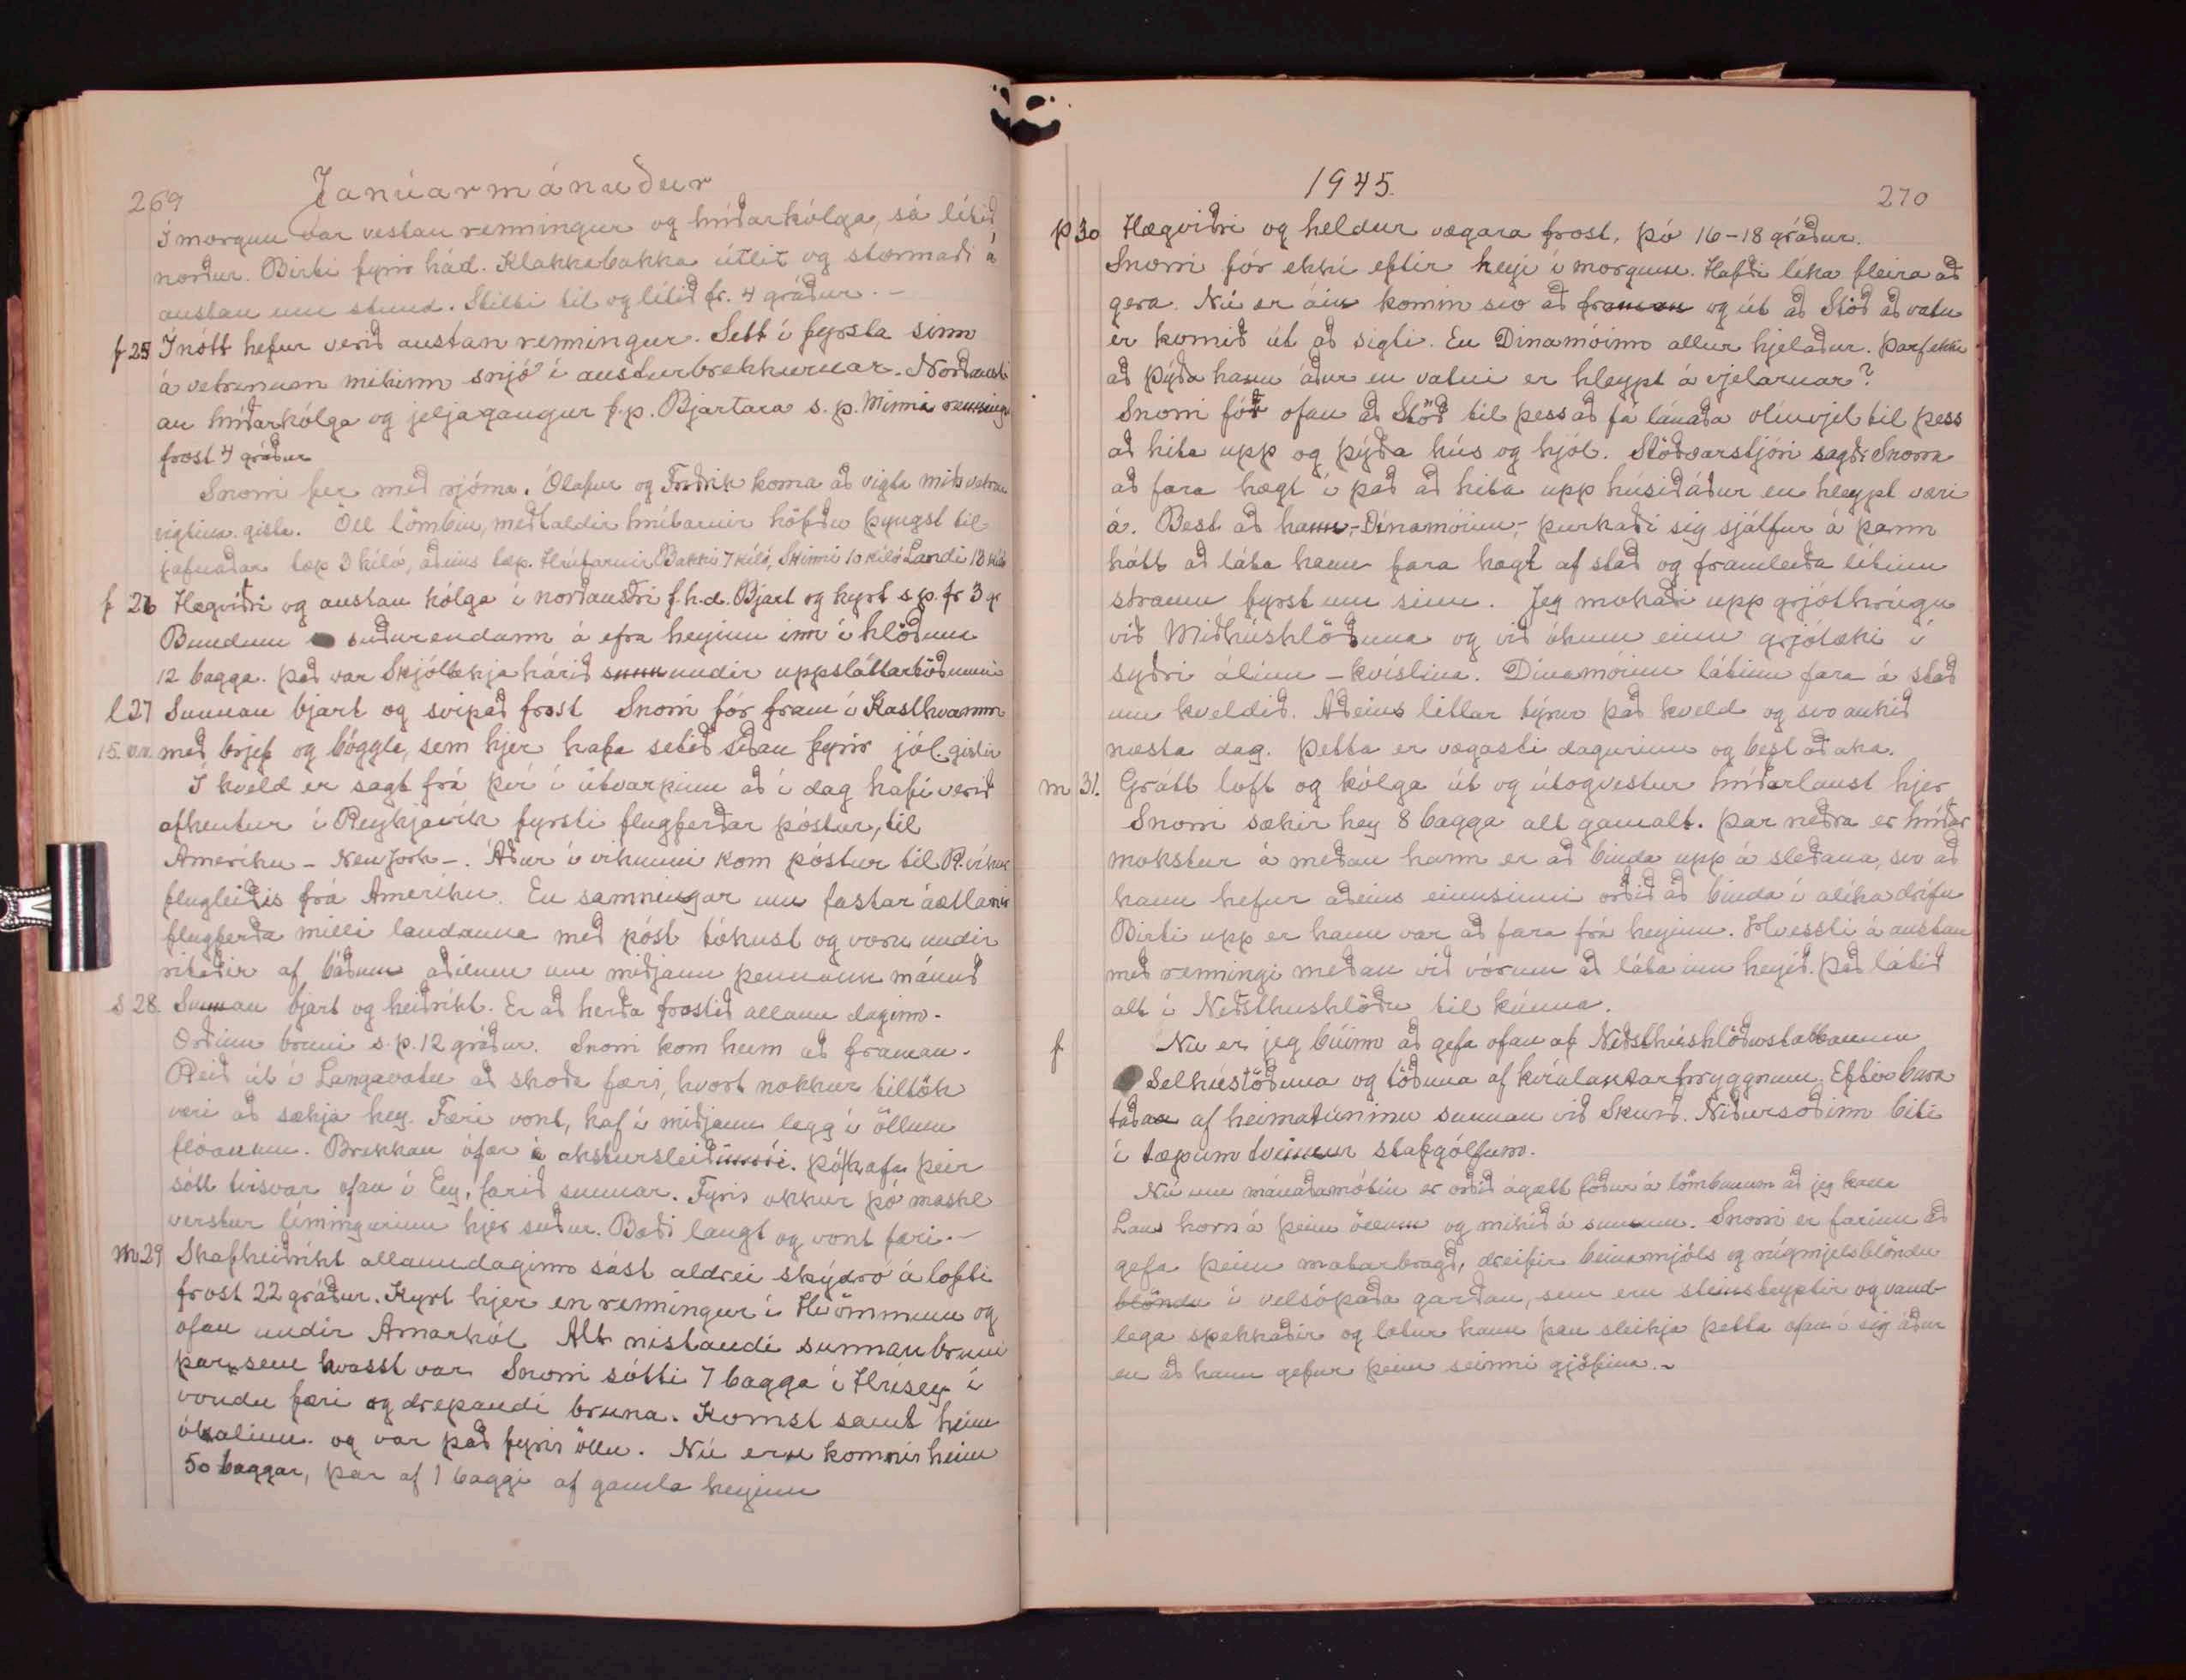 269 Janúarmánuður
Í morgun var vestan renningur og hríðarkólga, sá lítið
norður. Birti fyrir hád. Klakkabakka útlit og stormaði á
austan um stund. Stilti til og lítið fr. 4 gráður. –
f 25 Í nótt hefur verið austan renningur. Sett í fyrsta sinn
á vetrinum mikinn snjó í austurbrekkurnar. Norðaust
an hríðarkólga og jeljagangur f.p. Bjartara s.p. Minni renning
frost 4 gráður
Snorri fer með rjóma. Ólafur og Friðrik koma að vigta miðsvetrar
vigtina. gista. Öll lömbin, meðtaldir hrútarnir höfðu þyngst til
jafnaðar tæp 3 kíló, aðeins tæp. Hrútarnir Bakki 7 kíló, Skinni 10 kíló Landi 13 kíló
f 26 Hægviðri og austan kólga í norðaustri f.h.d. Bjart og kyrt s.p. fr 3 gr
Bundum suðurendann á efra heyinu inn í hlöðunni
12 bagga. Það var Skjólbekjahárið undir uppsláttartöðunni
l 27 Sunnan bjart og svipað frost Snorri fór fram í Kasthvamm
15. v.v. með brjef og böggla, sem hjer hafa setið síðan fyrir jól. gistir
Í kveld er sagt frá því í útvarpinu að í dag hafi verið
afhentur í Reykjavík fyrsti flugferðar póstur, til
Ameríku – New Jork –. Áður í vikunni kom póstur til R.víkur
flugleiðis frá Ameríku. En samningar um fastar áætlanir
flugferða milli landanna með póst tókust og voru undir
ritaðir af báðum aðilum um miðjann þennann mánuð
s 28. Sunnan bjart og heiðríkt. Er að herða frostið allann daginn.
Orðinn bruni s.p. 12 gráður. Snorri kom heim að framan.
Reið út í Langavatn að skoða færi, hvort nokkur tiltök
væri að sækja hey. Færi vont, kaf í miðjann legg í öllum
flóanum. Brekkan ófær á akstursleið. Þó hafa þeir
sótt tvisvar ofan í Ey, farið sunnar. Fyrir okkur þó máske
verstur límingurinn hjer suður. Bæði langt og vont færi. –
m 29 Skafheiðríkt allann daginn sást aldrei ský dró á lofti
frost 22 gráður. Kyrt hjer en renningur í Hvömmum og
ofan undir Arnarhól Alt nístandi sunnan bruni
þar sem hvasst var Snorri sótti 7 bagga í Hrísey í
vondu færi og drepandi bruna. Komst samt heim
ókalinn. og var það fyrir öllu. Nú eru komnir heim
50 baggar, þar af 1 baggi af gamla heyinu
1945. 270
þ 30 Hægviðri og heldur vægara frost, þó 16–18 gráður.
Snorri fór ekki eftir heyi í morgun. Hafði líka fleira að
gera. Nú er áin komin svo að framan og út að Stöð að vatn
er komið út að sigti. En Dinamóinn allur hjelaður. Þarf ekki
að þýða hann áður en vatni er hleypt á vjelarnar?
Snorri fór ofan að Stöð til þess að fá lánaða olíuvjel til þess
að hita upp og þýða hús og hjól. Stöðvarstjóri sagði Snorra
að fara hægt í það að hita upp húsið áður en hleypt væri
á. Best að hann, – Dínamóinn, – þurkaði sig sjálfur á þann
hátt að láta hann fara hægt af stað og framleiða lítinn
straum fyrst um sinn. Jeg mokaði upp grjóthrúgu
við Miðhúshlöðuna og við ókum einu grjótæki í
syðri álinn – kvíslina. Dínamóinn látinn fara á stað
um kveldið. Aðeins litlar týrur það kveld og svo aukið
næsta dag. Þetta er vægasti dagurinn og best að aka.
m 31. Grátt loft og kólga út og útogvestur hríðarlaust hjer
Snorri sækir hey 8 bagga alt gamalt. Þar neðra er hríðar
mokstur á meðan hann er að binda upp á sleðana, svo að
hann hefur aðeins einusinni orðið að binda í alíka drífu
Birti upp er hann var að fara frá heyinu. Hvessti á austan
með renningi meðan við vórum að láta inn heyið. Það látið
alt í Neðsthushlöðu til kúnna.
f Nú er jeg búinn að gefa ofan af Neðsthúshlöðustabbanum
Selhústöðuna og töðuna af hryggnum. Eftir bara
taðan af heimatúninu sunnan við Skurð. Niðursoðinn biti
í tæpum tveimur stafgólfum.
Nú um mánaðamótin er orðið ágætt fóður á lömbunum að jeg kalla
Laus horn á þeim öllum og mikið á sumum. Snorri er farinn að
gefa þeim matarbragð, dreifir beinamjöls og rúgmjelsblöndu
blöndu í velsópaða garðan, sem eru steinsteyptir og vand-
lega spekkaðir og lætur hann þau sleikja þetta ofan í sig áður
en að hann gefur þeim seinni gjöfina. ~